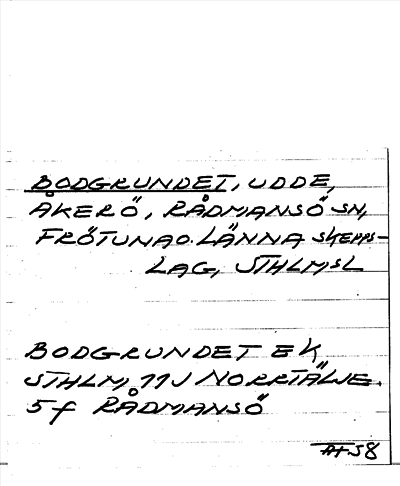 BODGRUNDET, UDDE,
ÅKERÖ, RÅDMANSÖ SN,
FRÖTUNA O. LÄNNA SKEPPS-
LAG, STHLMSL
BODGRUNDET EK
STHLM, 11J NORRTÄLJE.
5f RÅDMANSÖ